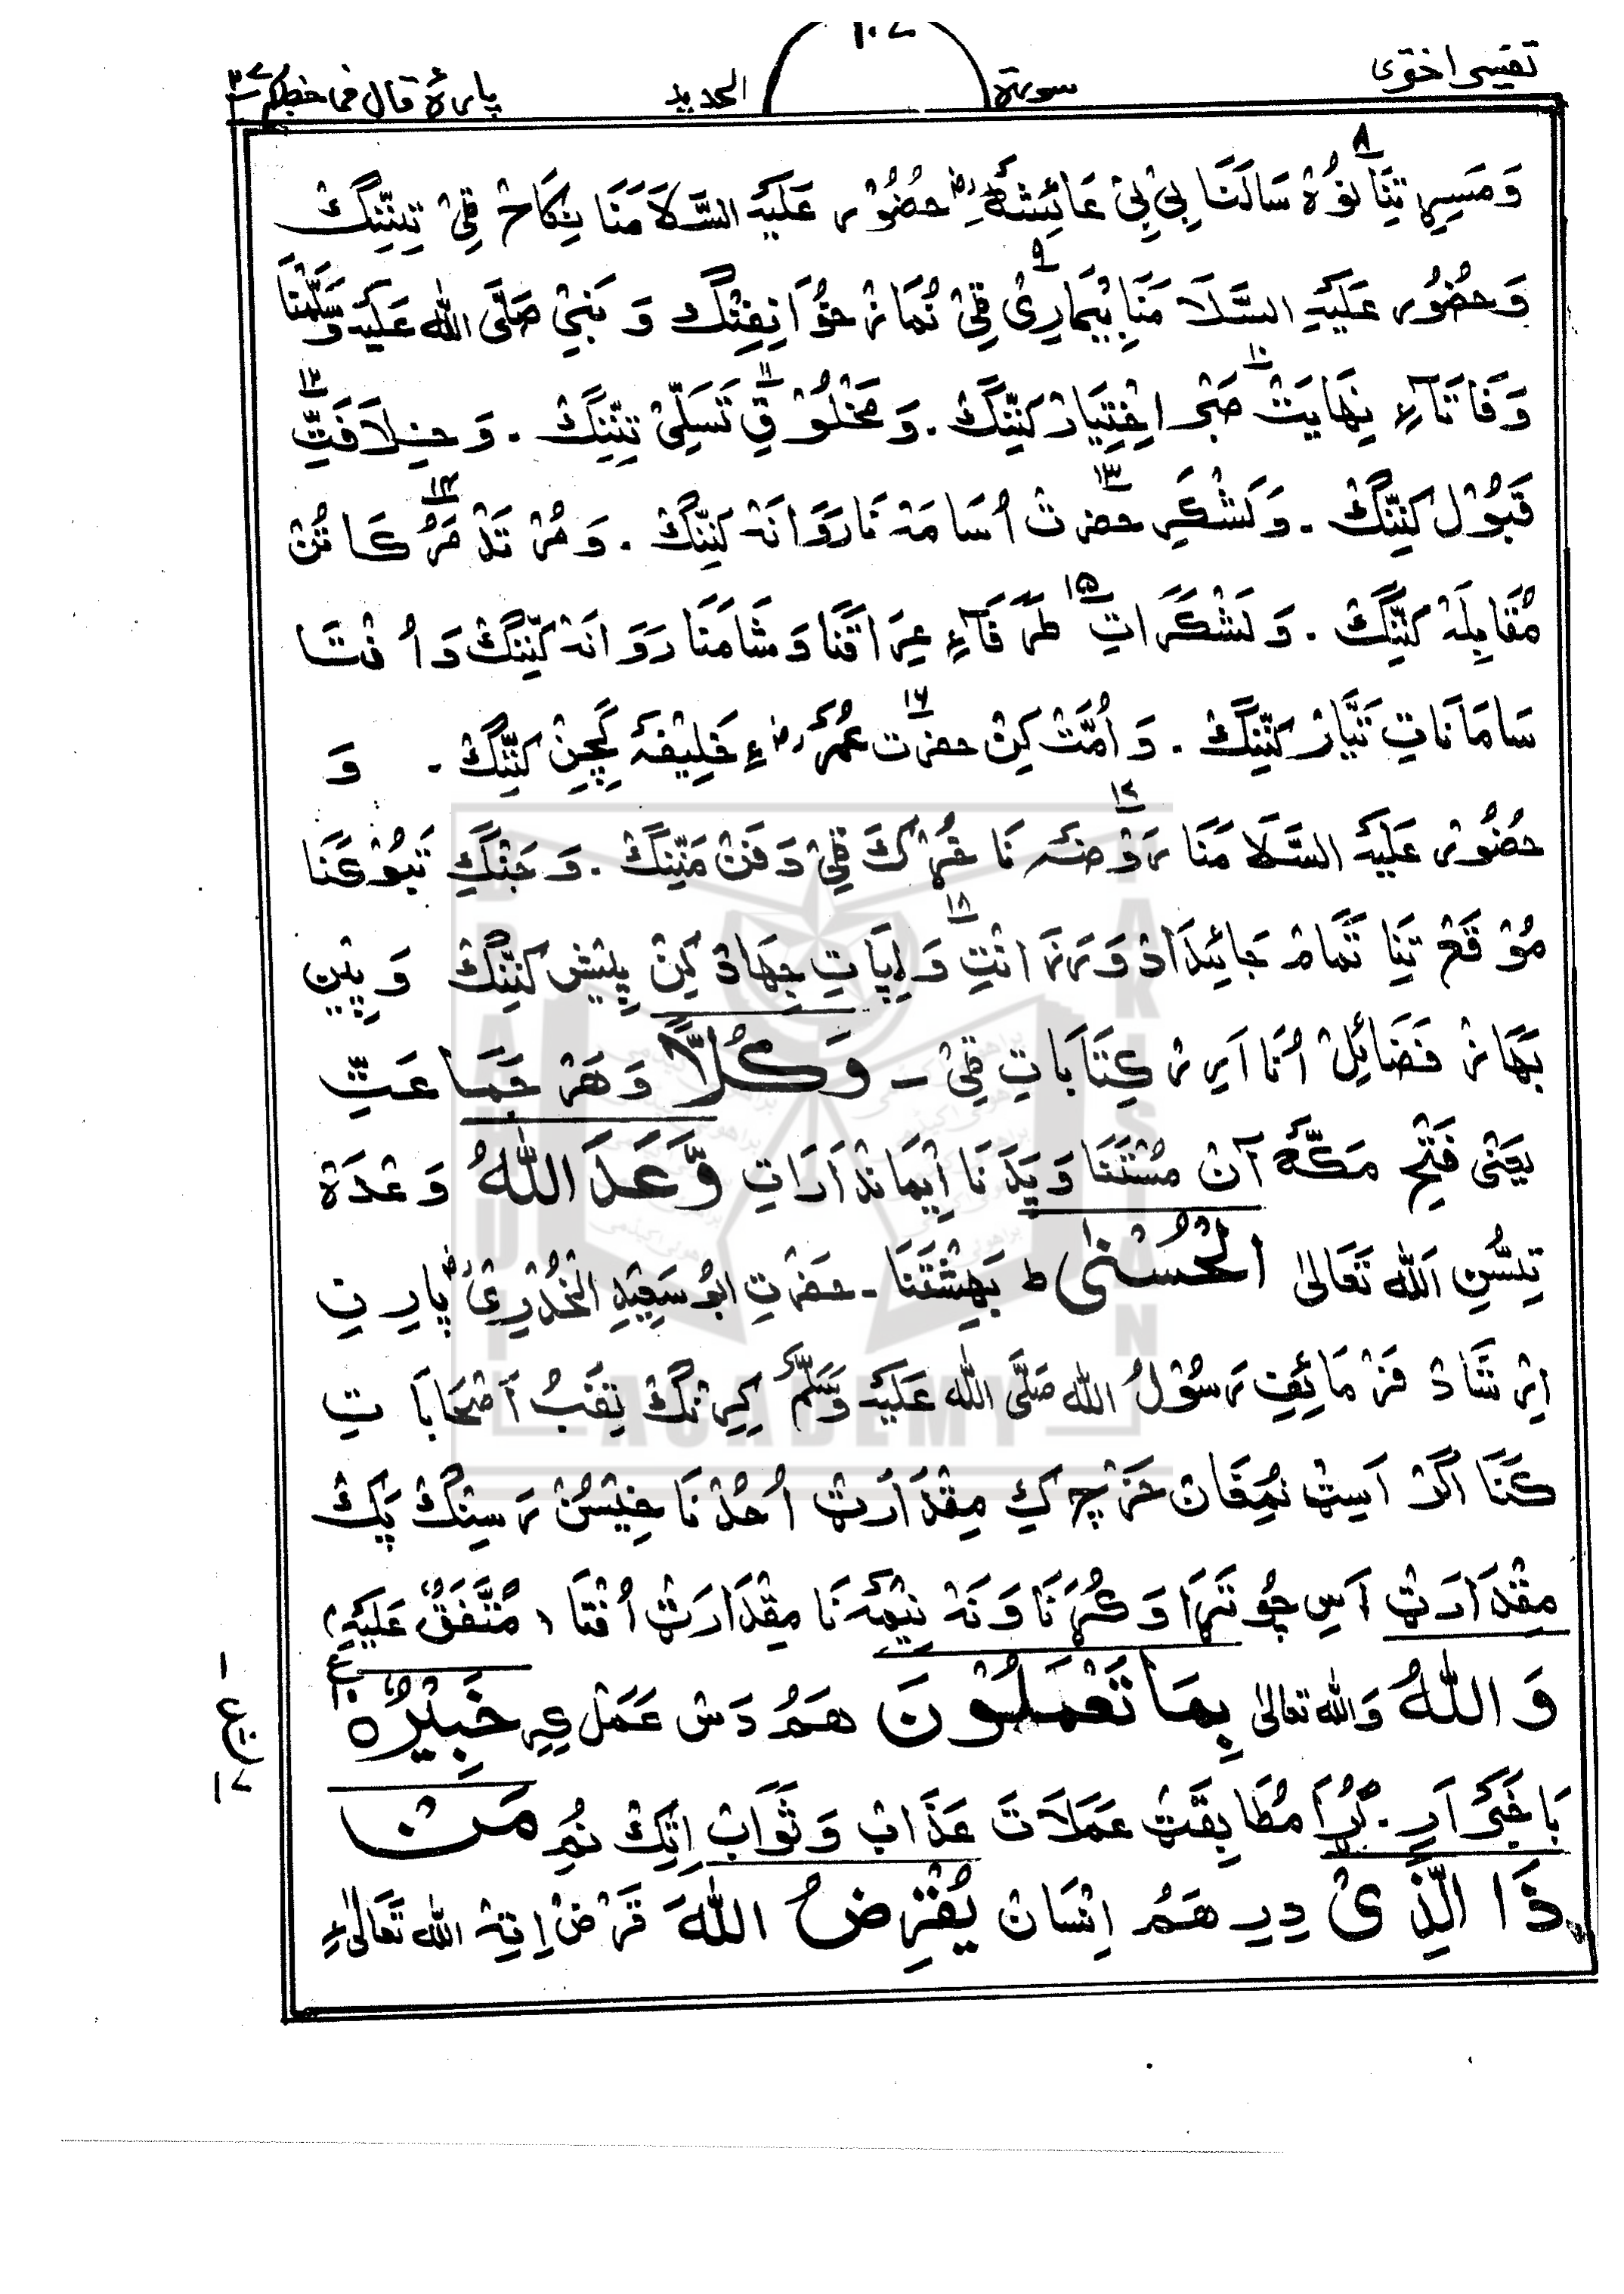 تفسیر اختری سورة ۱۰۷ الحدید پارۂ قال فما خطبکم ۲۷
وَمَسِیرِ تِنَا نُوْہ سَالَنَا بِیْ بِیْ عَائِیشَہؓ حضُوْر عَلَیْہِ السَّلَامَنَا نِکَاحْ ٹِیْ تِنِّنِگْ
وَحضُوْر عَلَیْہِ السَّلَامَنَا بِیْمَارِیْ ٹِیْ نُمَازْ خوَانِفِنْگ وَ نَبِیْ صَلَّی اللہ عَلَیْہِ وَسَلَّمْنَا
وَفَاتَآءِ نِہَایَتْ صَبْر اِخْتِیَارْ کَنِّنِگْ . وَمَخْلُوْقِ تَسَلِّیْ تِنِّنِگْ . وَخِلَافَتِّ
قَبُوْل کَنِّنِگْ . وَلَشْکَرِ حضرت اُسَامَہْ نَا رَوَانَہْ کَنِّنِگْ . وَمُرْتَدْ مَرُکَاتُنْ
مُقَابِلَہْ کَنِّنِگْ . وَلَشْکَرَاتِ طَرَفَآءِ عِرَاقَنَا وَشَامَنَا رَوَانَہْ کَنِّنِگْ وَاُفْتَا
سَامَانَاتِ تَیَّارْ کَنِّنِگْ . وَاُمَّتْ کِنْ حضرت عُمَرؓءِ خَلِیْفَہ گَچِنْ کَنِّنِگْ . وَ
حضُوْر عَلَیْہِ السَّلَامَنَا رَوْضَہ نَا خُڑْکَ ٹِیْ دَفَنْ مَنِّنِگْ . وَجَنْگِ تَبُوْکَنَا
مُوْقَعْ تِنَا تَمَامْ جَائِیدَادْ وَزَرَانْتِ وَلِپَاتِ جِہَادْ کِنْ پِیْش کَنِّنِگْ وَ پِیْن
بَہَازْ فَضَائِلْ اُنَا اَرِرْ کِتَابَاتِ ٹِیْ ۔ وَکُلًّا وَہَرْ جَمَاعَتِّ
یَعْنِیْ فَتْحِ مَکَّہ آنْ مُسْتَنَا وَپَدَنَا اِیْمَانْدَارَاتِ وَّعَدَ اللّٰہُ وَعْدَہْ
تِسُّنِ اَللّٰہ تَعَالیٰ الْحُسْنٰی ط بَہِشْتَنَا ۔ حَضْرتِ ابُو سَعِیْدِ الْخُدْرِیْؓ پَارِرِ
اِرْشَادْ فَرْمَائِفِ رَسُوْلُ اللّٰہ صَلَّی اللّٰہ عَلَیْہِ وَسَلَّمْ کِرِنْگْ تِفَبُ اَصْحَابَاتِ
کَنَا اَگَرْ اَسِٹْ نُمِقَانْ خَرْچ کِ مِقْدَارَٹْ اُحُدْنَا خِیْسُنْ رَسِنْگْ پَکْ
مِقْدَارَٹْ اَسِ چُوْتَرَا وَکُرَنَا وَنَہْ نِیْمَہ نَا مِقْدَارَٹْ اُفْتَا (مُتَّفَقٌ عَلَیْہِ)
وَاللّٰہُ وَاللّٰہ تعالیٰ بِمَا تَعْمَلُوْنَ ہَمُ دَسْ عَمَلْ کِرِ خَبِیْرٌ ۱۰
بَاخَبَر اَرِ . گُرَا مُطَابِقَٹْ عَمَلَاتَ عَذَابْ وَثَوَابْ اِتِکْ نُمِ مَنْ
ذَا الَّذِیْ دِرِ ہَمُ اِنْسَانْ یُقْرِضُ اللّٰہَ قَرْض اِتِہْ اللّٰہ تَعَالیٰءِ
ع ۱۷
BRAHUI ACADEMY PAKISTAN